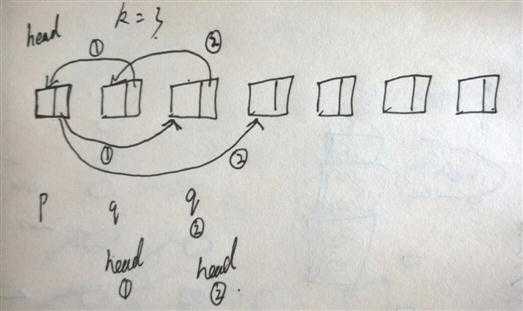 head k=3
① ②
① ②
p q q
②
head head
① ②